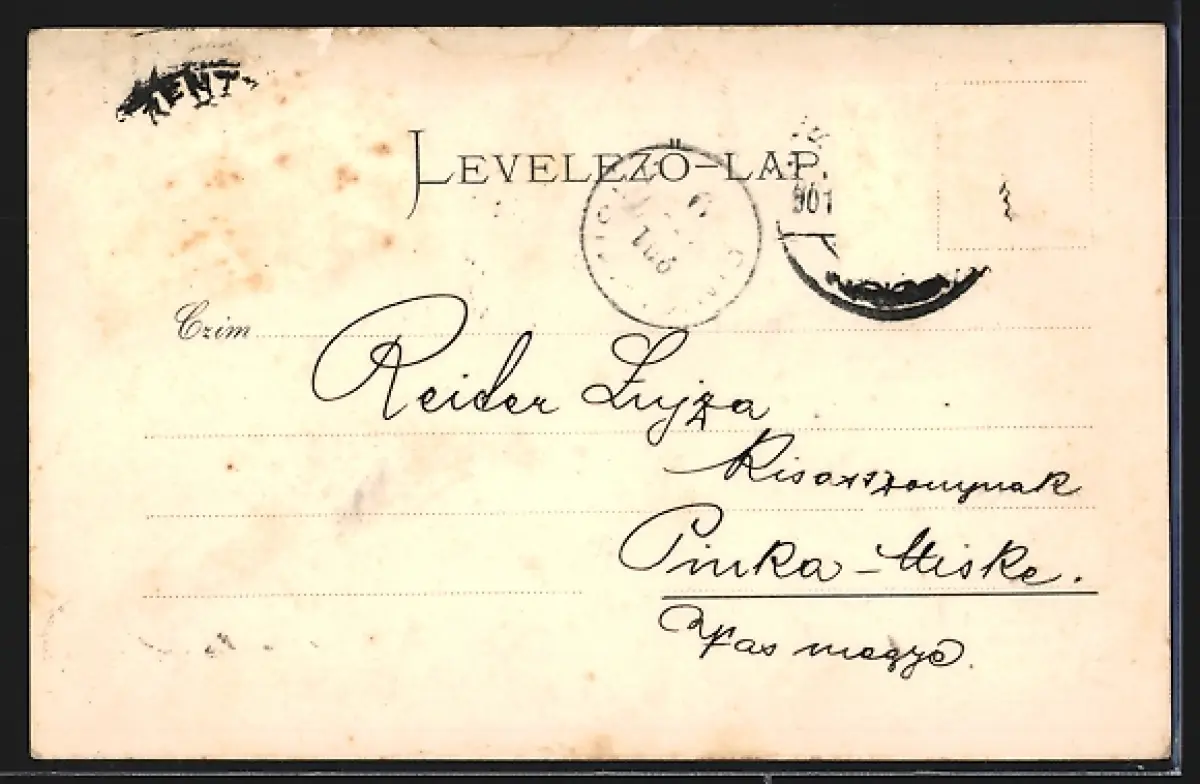 KENT.
LEVELEZŐ-LAP.
901
Czim
Reider Lujza
Kisasszonynak
Pinka-Miske.
Vas megye.